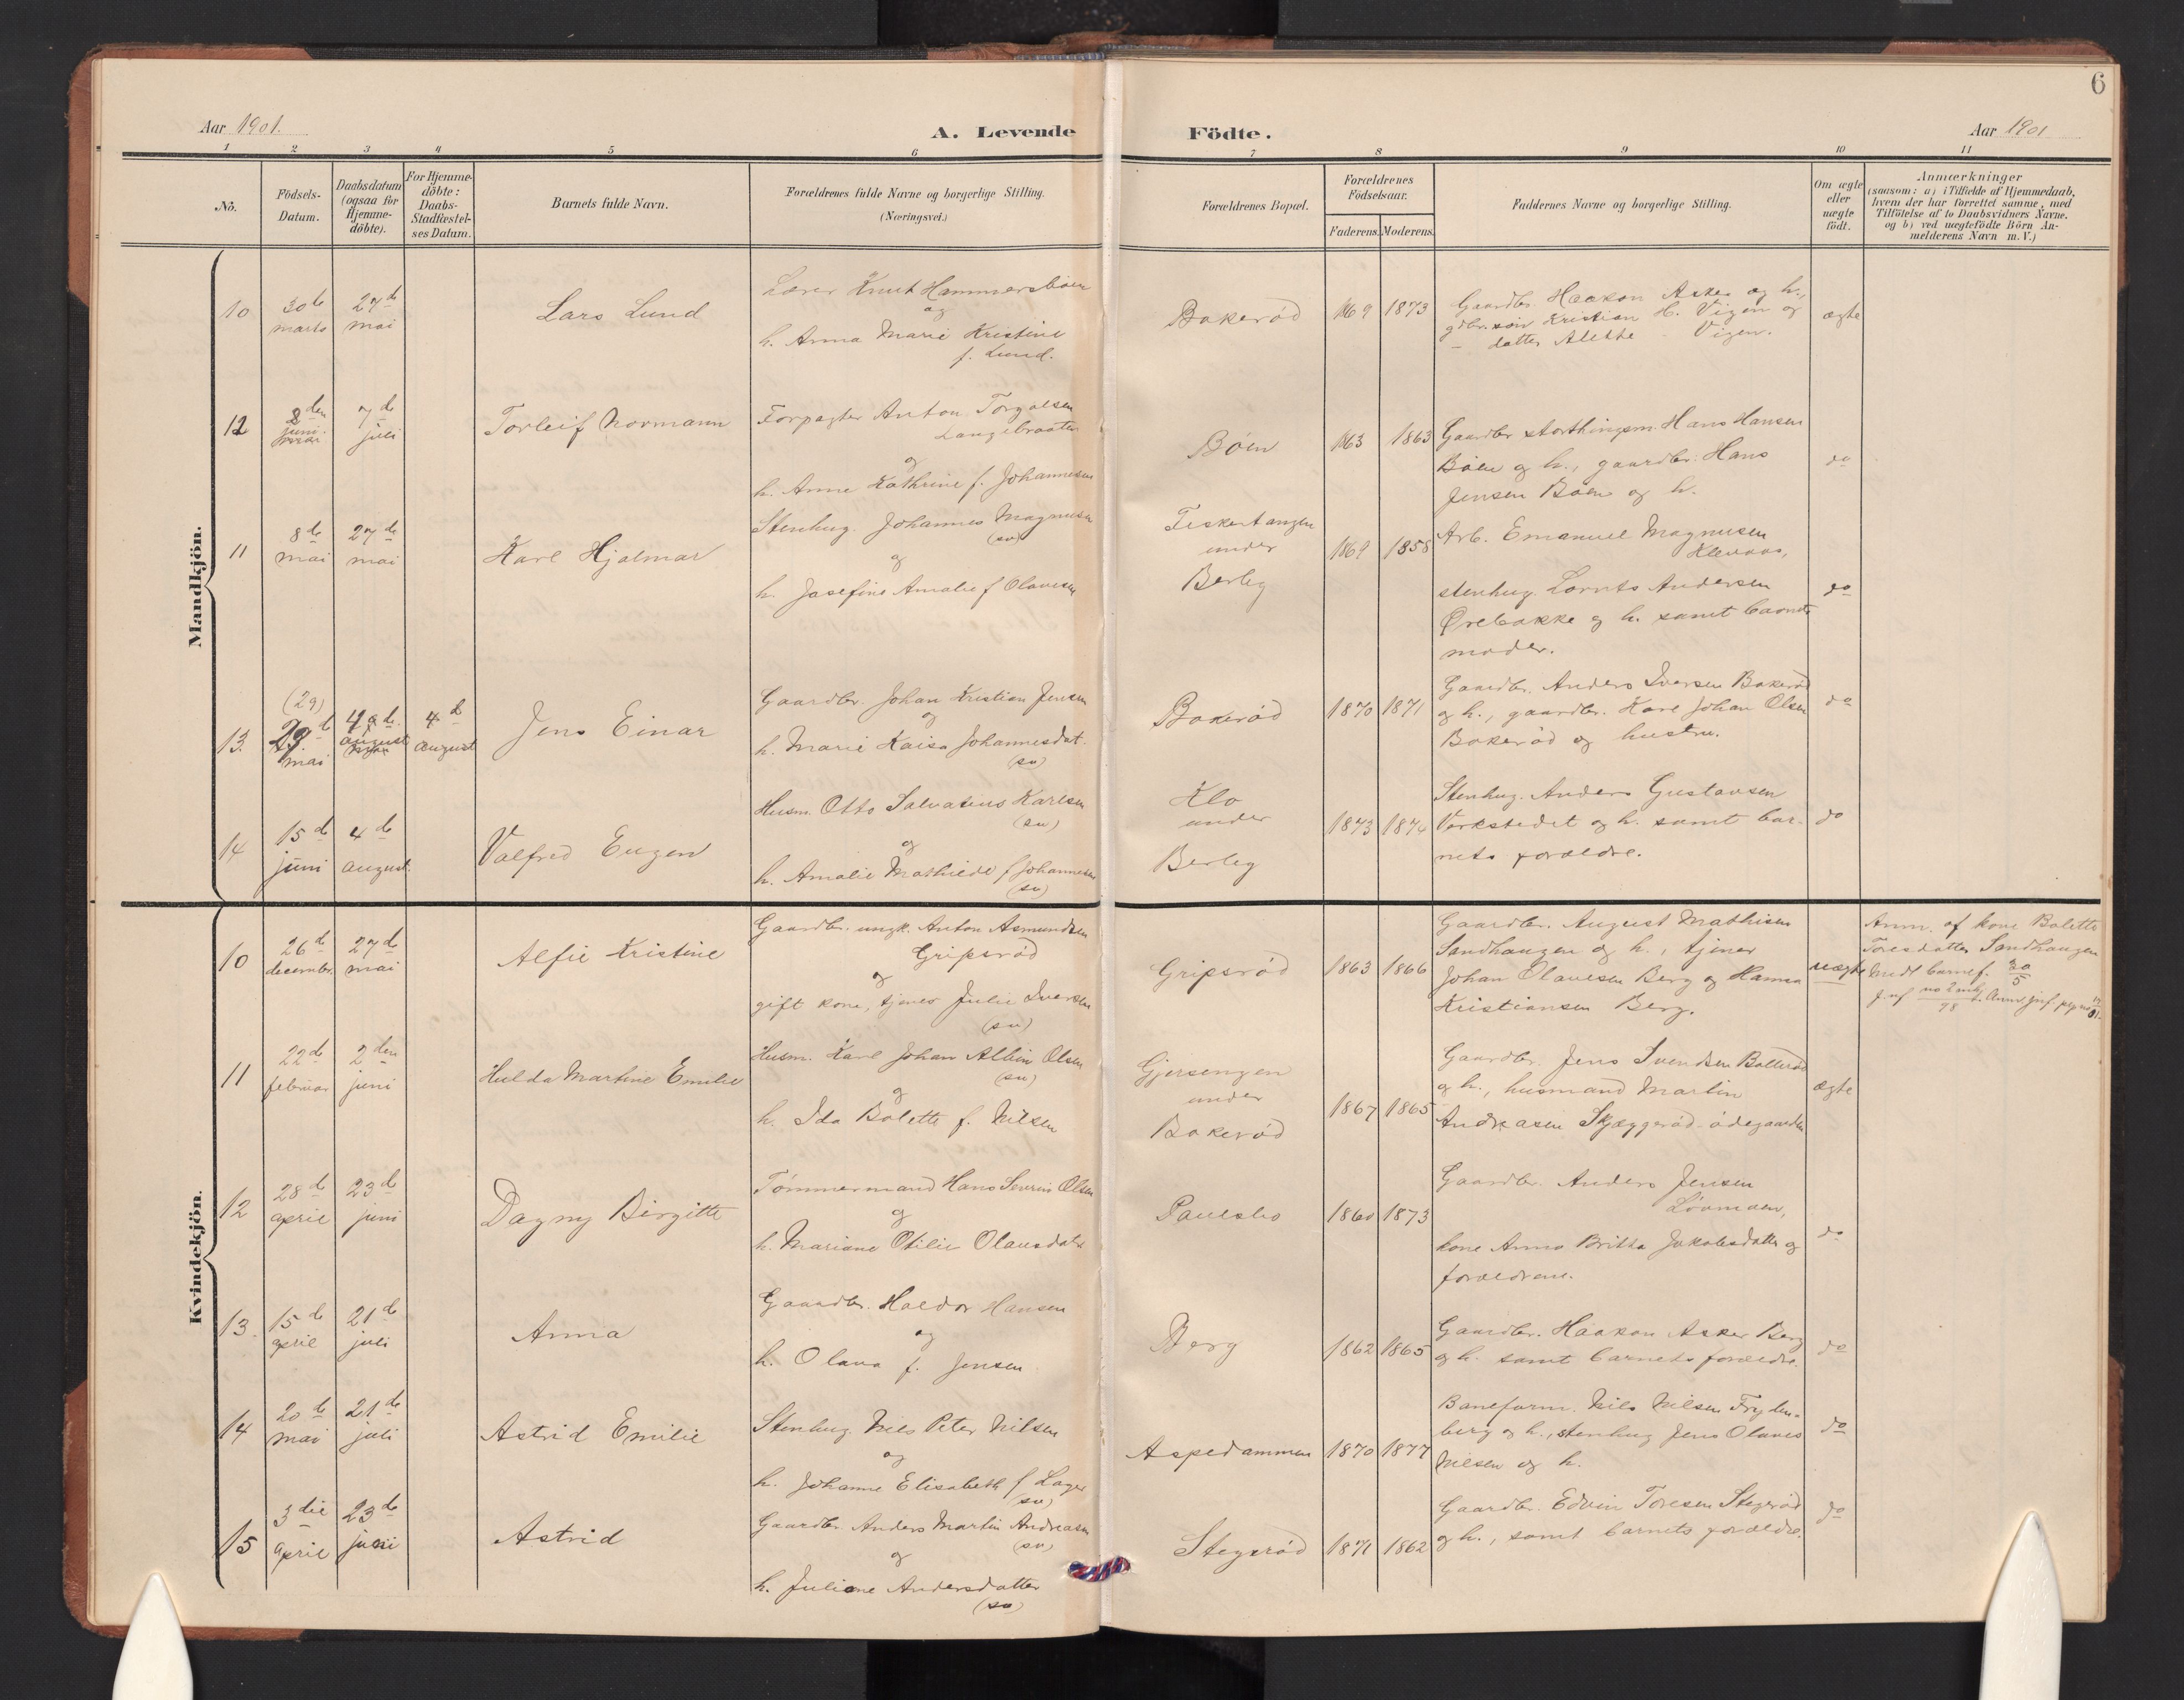 6
Aar 1901.
A. Levende Födte.
Aar 1901
1 2 3 4 5 6 7 8 9 10 11
No.
Födsels-
Datum.
Daabsdatum
(ogsaa for
Hjemme-
döbte).
For Hjemme-
döbte:
Daabs-
Stadfæstel-
ses Datum.
Barnets fulde Navn.
Forældrenes fulde Navne og borgerlige Stilling.
(Næringsvei.)
Forældrenes Bopæl.
Forældrenes
Födselsaar.
Faderens. Moderens.
Faddernes Navne og borgerlige Stilling.
Om ægte
eller
uægte
födt.
Anmærkninger
(saasom: a) i Tilfælde af Hjemmedaab,
hvem der har forrettet samme, med
Tilföielse af to Daabsvidners Navne.
og b) ved uægtefödte Börn An-
melderens Navn m. V.)
Mandkjön.
10
30de
marts
27de
mai
Lars Lund
Lærer Knut Hammersbøen
og
h. Anna Marie Kristine
f. Lund.
Bakerød
1869 1873
Gaardbr. Haakon Asker og h.,
gdbr.søn Kristian H. Vigen og
– datter Alette Vigen.
ægte
12
8den
juni
7de
juli
Torleif Normann
Forpagter Anton Torgalsen
Langebraaten
og
h. Anne Kathrine f. Johannesen
Bøen
1863 1863
Gaardbr storthingsm. Hans Hansen
Bøen og h., gaardbr. Hans
Jensen Bøen og h.
do
11
8de
mai
27de
mai
Karl Hjalmar
Stenhug. Johannes Magnusen
(sv)
og
h. Josefine Amalie f Olavesen
Fiskertangen
under
Berby
1869 1858
Arb. Emanuel Magnusen
Klevaas,
stenhug. Lornts Andersen
Ørebakke og h. samt barnets
moder.
do
13.
(29)
29de
mai
4de
august
4de
august
Jens Einar
Gaardbr. Johan Kristian Jensen
og
h. Marie Kaisa Johannesdat.
(sv)
Bakerød
1870 1871
Gaardbr. Anders Iversen Bakerød
og h., gaardbr. Karl Johan Olsen
Bakerød og hustru.
do
14
15de
juni
4de
august.
Valfred Eugen
Husm. Otto Salvatius Karlsen
(sv)
og
h. Amalie Mathilde f Johannesen
(sv)
Klo
under
Berby
1873 1874
Stenhug. Anders Gustavsen
Verkstedet og h. samt bar-
nets forældre.
do
Kvindekjön.
10
26de
decembr.
27de
mai
Alfie Kristine
Gaardbr. ungk. Anton Asmundsen
Gripsrød
og
gift kone, tjener Julie Iversen
(sv)
Gripsrød
1863 1866
Gaardbr. August Mathisen
Sandhaugen og h., tjener
Johan Olavesen Berg og Hanna
Kristiansen Berg.
uægte
Anm. af kone Bolette
Toresdatter Sandhaugen
Medt barnef. 30/5
11
22de
februar
2den
juni
Hulda Martine Emilie
Husm. Karl Johan Albin Olsen
(sv)
og
h. Ida Bolette f. Nilsen
Gjersengen
under
Bakerød
1867 1865
Gaardbr. Jens Svendsen Bollerød
og h., husmand Martin
Andreasen Skjæggerød-ødegaarden
ægte
12
28de
april
23de
juni
Dagny Birgitte
Tømmermand Hans Severin Olsen
og
h. Mariane Otilie Olausdatr
Paulsbo
1860 1873
Gaardbr. Anders Jensen
Løvmoen,
kone Anna Britta Jakobsdatter og
forældrene.
do
13.
15de
april
21de
juli
Anna
Gaardbr. Haldor Hansen
og
h. Olava f. Jensen
Berg
1862 1865
Gaardbr. Haakon Asker Berg
og h. samt barnets forældre.
do
14
20de
mai
21de
juli
Astrid Emilie
Stenhug Nils Peter Nilsen
og
h. Johanne Elisabeth f Lager
(sv)
Aspedammen
1870 1877
Baneform. Nils Nilsen Fryden-
berg og h., stenhug Jens Olaves
Nilsen og h.
do
15
3die
april
23de
juni
Astrid
Gaardbr. Anders Martin Andreasen
(sv)
og
h. Juliane Andersdatter
(sv)
Stegerød
1871 1862
Gaardbr. Edvin Toresen Stegerød
og h., samt barnets forældre.
do